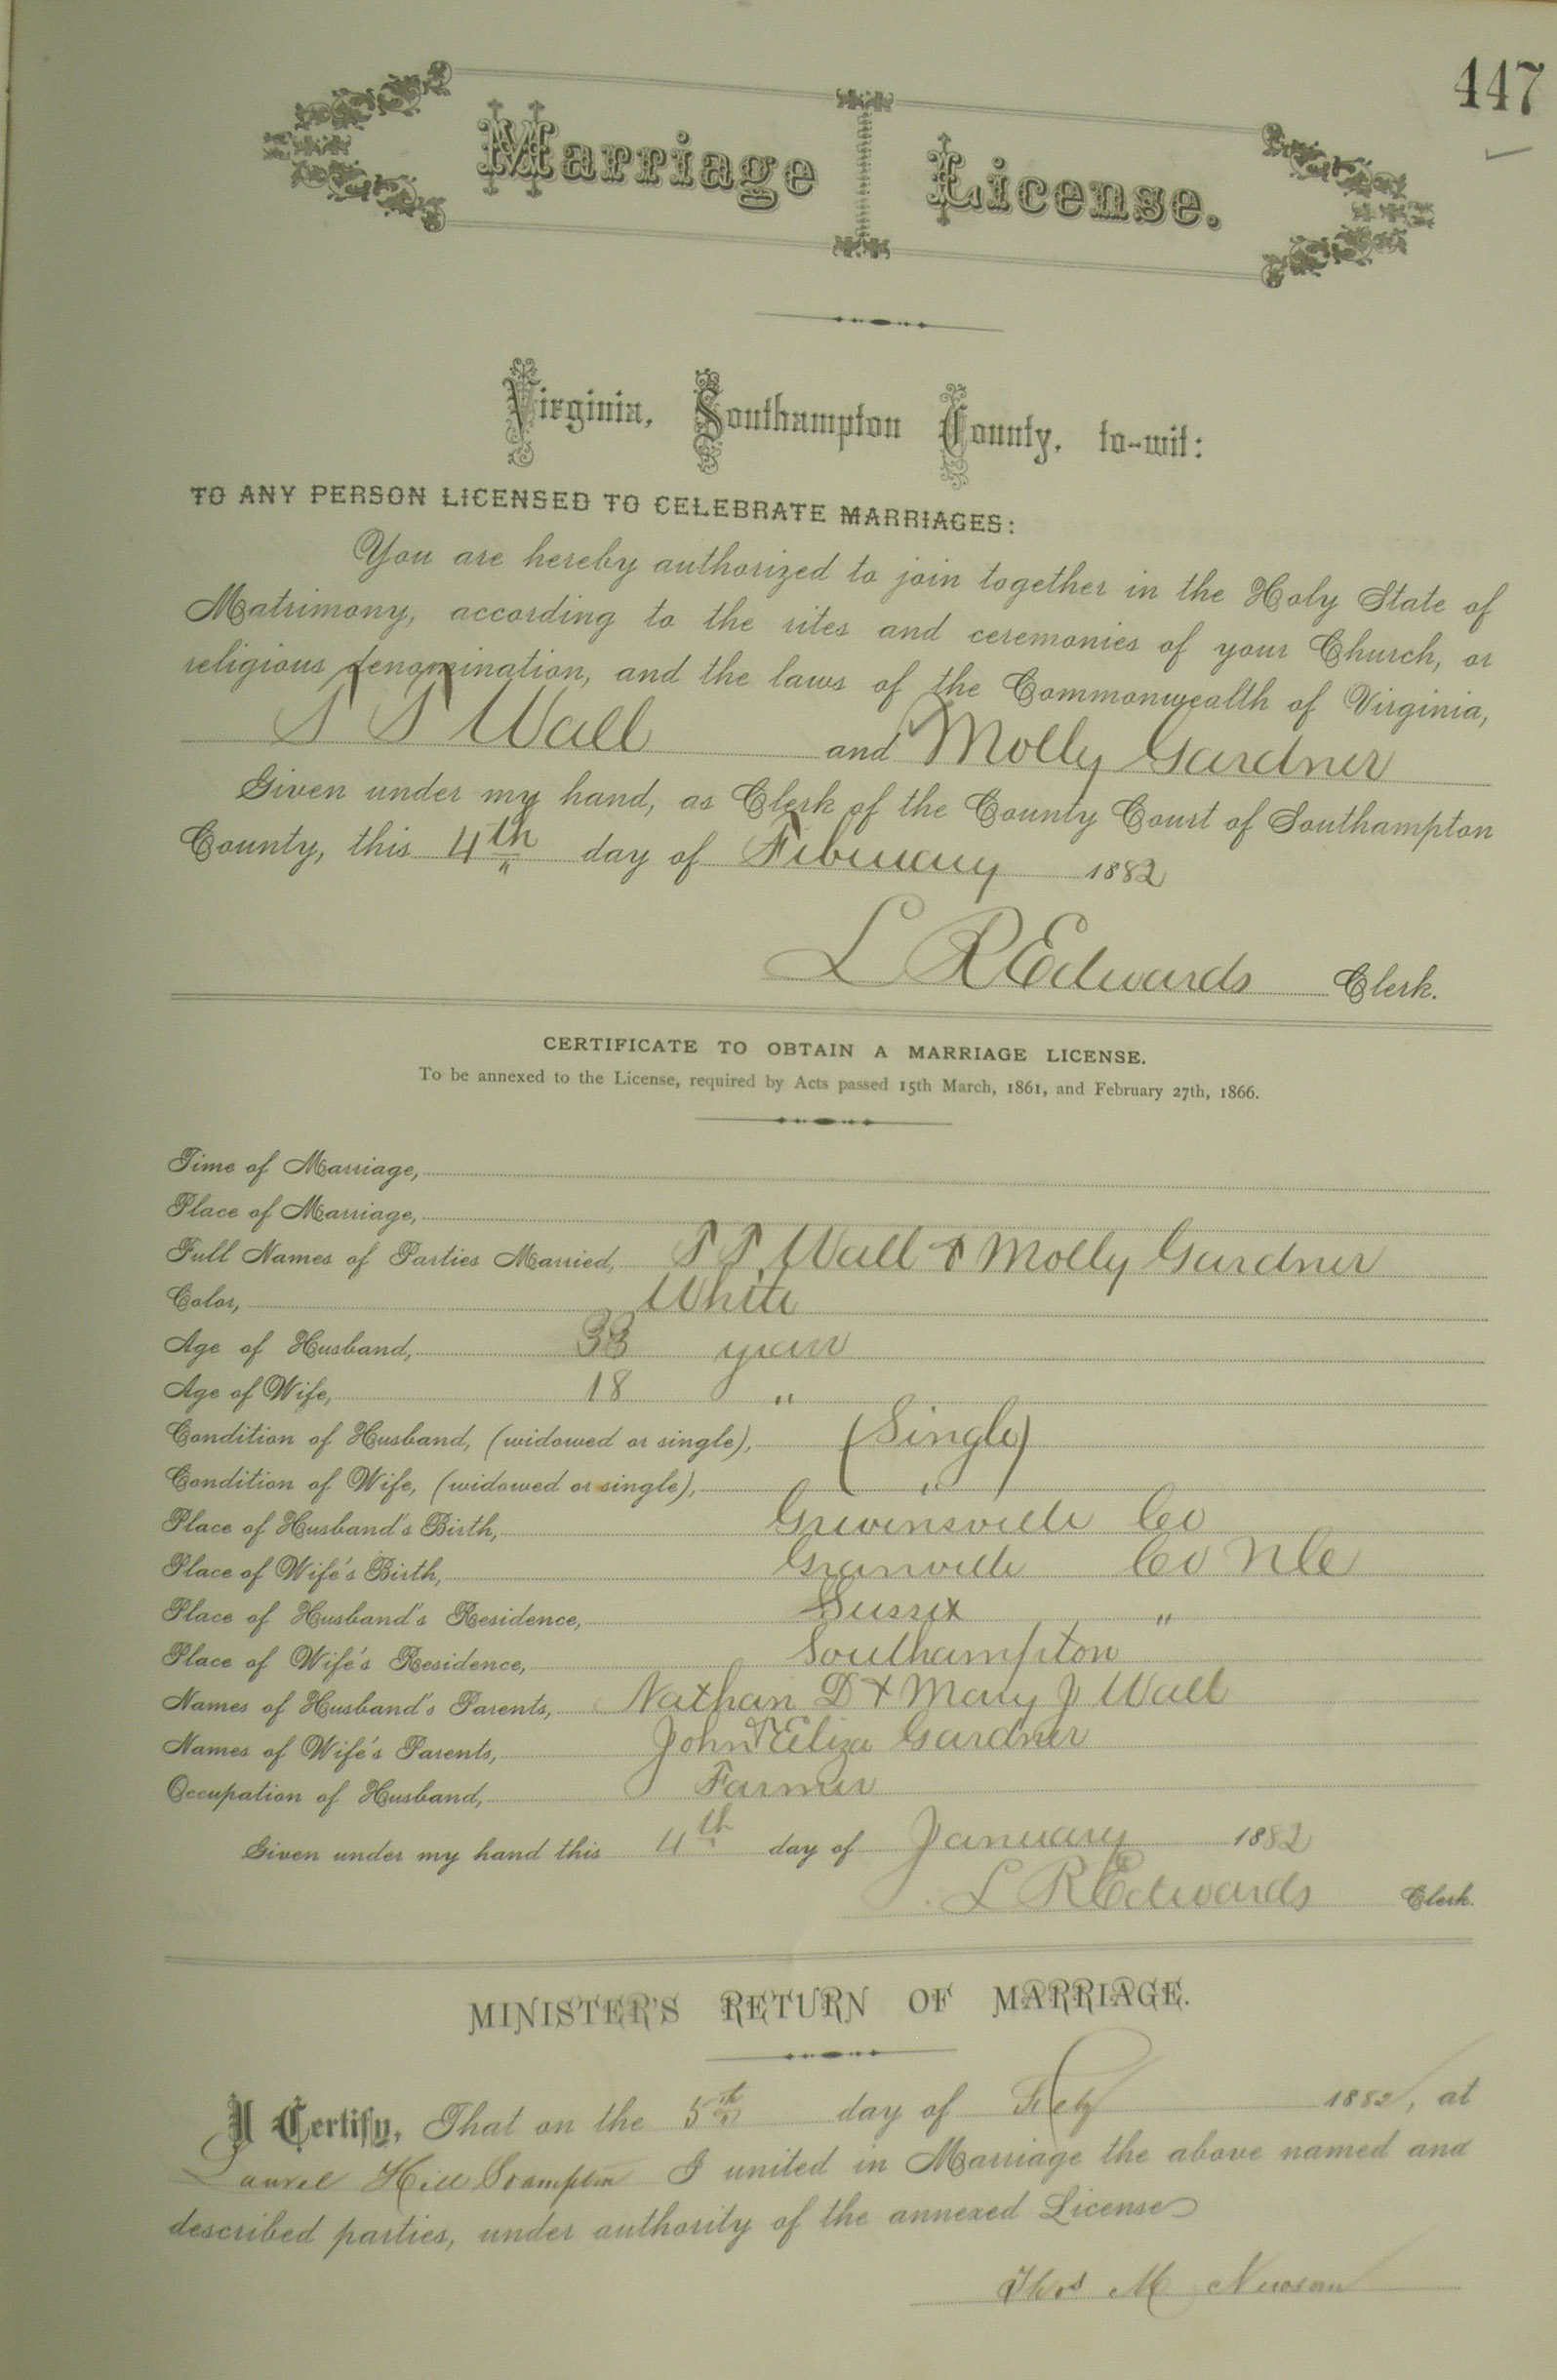 447
Marriage License.
Virginia, Southampton County, to-wit:
TO ANY PERSON LICENSED TO CELEBRATE MARRIAGES:
You are hereby authorized to join together in the Holy State of
Matrimony, according to the rites and ceremonies of your Church, or
religious denomination, and the laws of the Commonwealth of Virginia,
Wall and Molly Gardner
Given under my hand, as Clerk of the County Court of Southampton
County, this 4th day of February 1882
L R Edwards Clerk.
CERTIFICATE TO OBTAIN A MARRIAGE LICENSE.
To be annexed to the License, required by Acts passed 15th March, 1861, and February 27th, 1866.
Time of Marriage,
Place of Marriage,
Full Names of Parties Married, Wall & Molly Gardner
Color, White
Age of Husband, 33 years
Age of Wife, 18 "
Condition of Husband, (widowed or single), (Single)
Condition of Wife, (widowed or single), "
Place of Husband's Birth, Greensville Co
Place of Wife's Birth, Granville Co N C
Place of Husband's Residence, Sussex "
Place of Wife's Residence, Southampton
Names of Husband's Parents, Nathan D & Mary J Wall
Names of Wife's Parents, John & Eliza Gardner
Occupation of Husband, Farmer
Given under my hand this 4th day of January 1882
L R Edwards Clerk.
MINISTER'S RETURN OF MARRIAGE.
I Certify, That on the 5th day of 1882, at
Laurel Hill I united in Marriage the above named and
described parties, under authority of the annexed License
Thos M Newsom